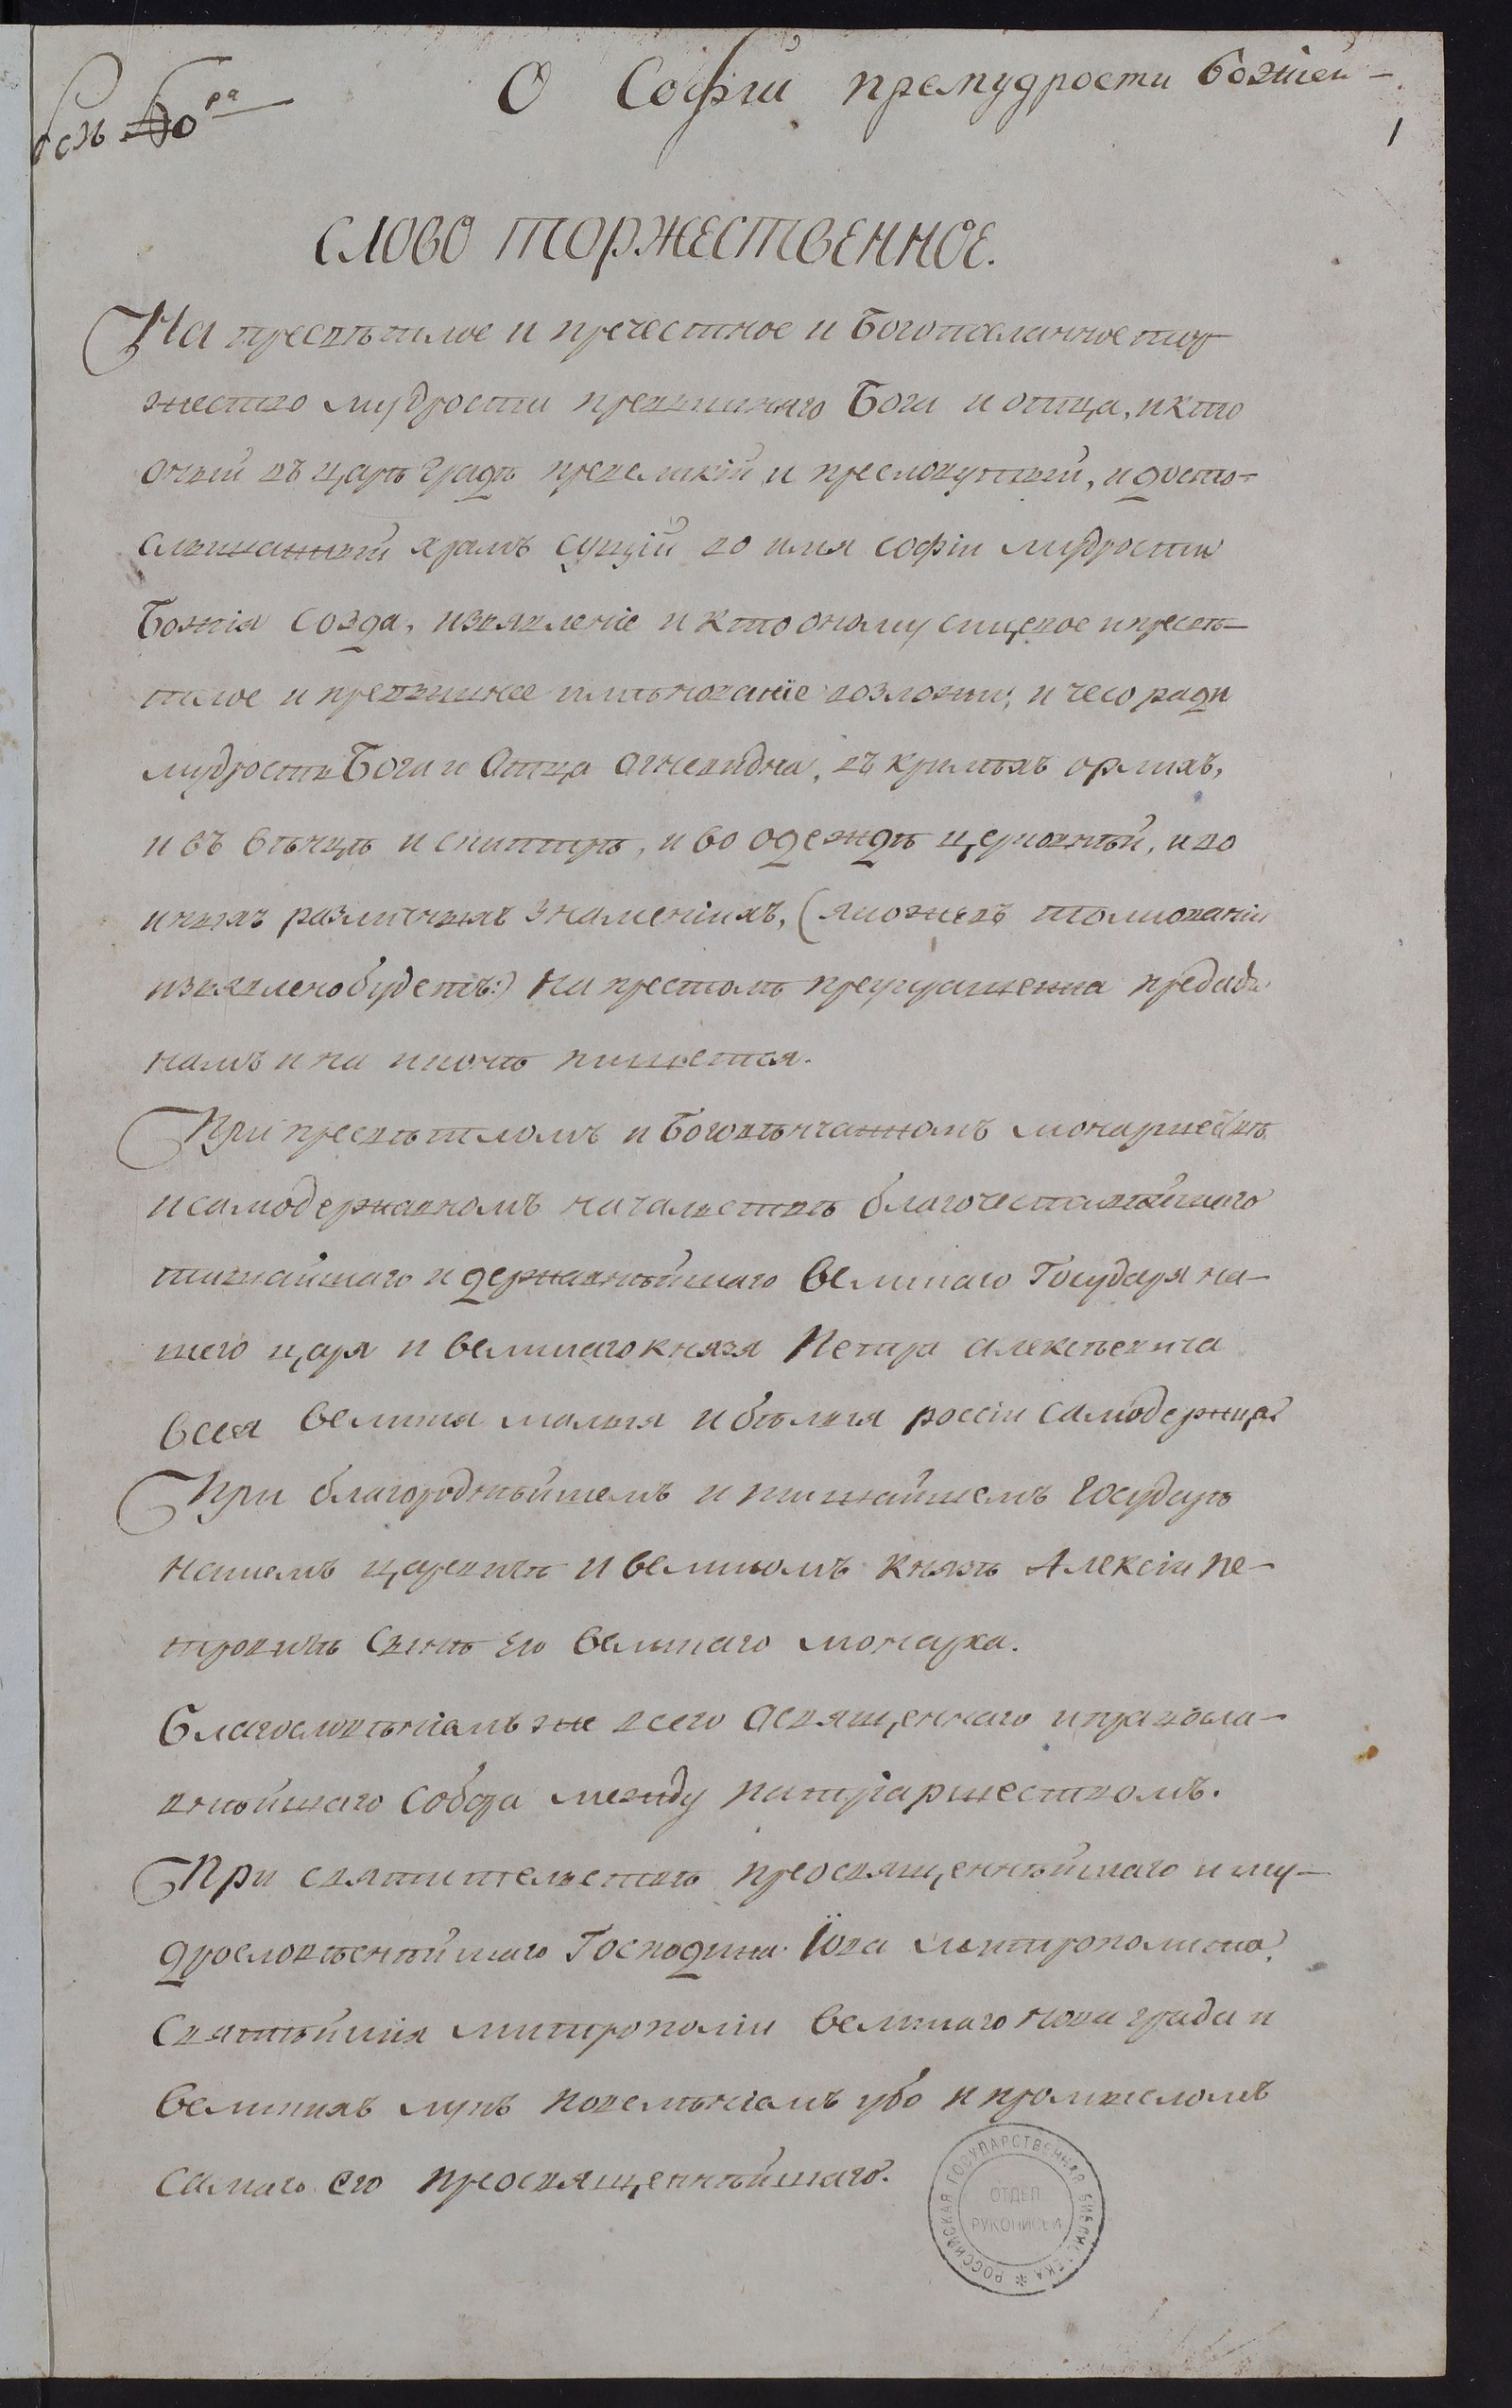 О Софіи премудрости божіей -
1
СЛОВО ТОРЖЕСТВЕННОЕ.
На пресвѣтлое и пречестное и Богожеланное тор
жество мудрости превышняго Бога и отца, и кто
оный въ царѣ градѣ превеликій и пресловутый, и досто-
слышанный храмъ сущій во имя софіи мудрости
Божія созда, изъявленіе и кто оному сицевое и пресвѣ-
тлое и превышнее имѣнованіе возложи, и чесо ради
мудрость Бога и Отца огневидна, въ крилѣхъ орлихъ,
и въ вѣнцѣ и скиптрѣ, и во одеждѣ церковнѣй, и во
иныхъ различныхъ знаменіихъ, (якоже въ толкованіи
изъявлено будетъ:) На престолѣ преукрашенна предаде
намъ и на иконѣ пишется.
При пресвѣтломъ и Боговѣнчанномъ монаршествѣ
и самодержавномъ начальствѣ благочестивѣйшаго
тишайшаго и державнѣйшаго великаго Государя на-
шего царя и великаго князя Петра алексѣевича
всея великія малыя и бѣлыя россіи самодержца.
При благороднѣйшемъ и тишайшемъ государѣ
нашемъ царевичѣ и великомъ князѣ Алексіи пе-
тровичѣ сынѣ его великаго монарха.
Благословѣніемъ же всего освященнаго и правосла-
внѣйшаго собора между патріаршествомъ.
При святительствѣ преосвященнѣйшаго и му-
дрословѣснѣйшаго Господина Іова митрополита,
святѣйшія митрополіи великаго нова града и
великихъ лукъ повелѣніемъ убо и промысломъ
самаго его преосвященнѣйшаго.
РОССИЙСКАЯ ГОСУДАРСТВЕННАЯ БИБЛИОТЕКА *
ОТДЕЛ
РУКОПИСЕЙ